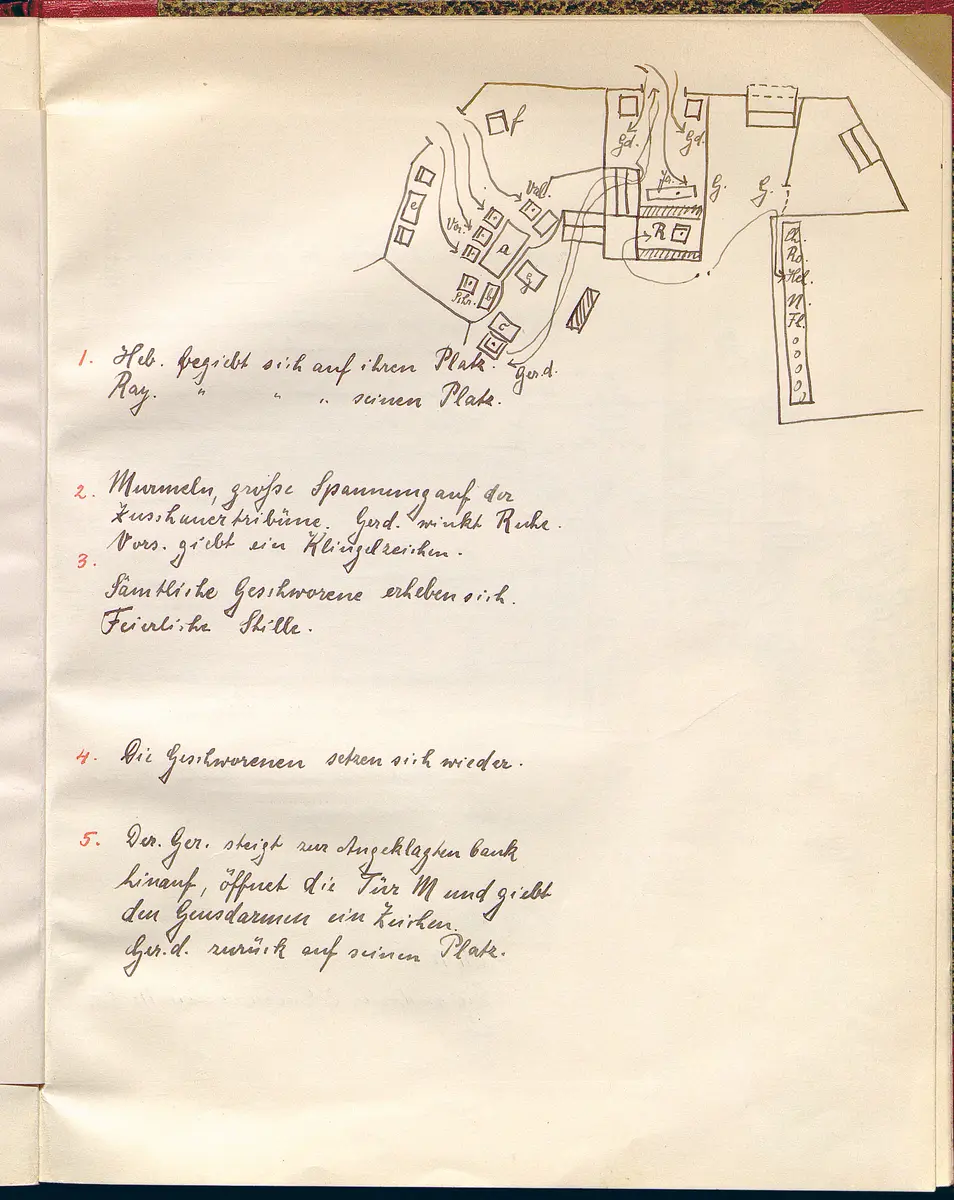 f
Gd.
Gd.
Ja.
G.
G.
e
Vert.
Vor.
a
g
R
Schr.
b
c
Ger.d.
Ch.
Ro.
Heb.
N.
Fl.
1. Heb. begiebt sich auf ihren Platz.
Ray. " " " seinen Platz.
2. Murmeln, große Spannung auf der
Zusshauertribüne. Gerd. winkt Ruhe.
Vors. giebt ein Klingelzeichen.
3.
Sämtliche Geschworene erheben sich.
Feierliche Stille.
4. Die Geschworenen setzen sich wieder.
5. Der. Ger. steigt zur Angeklagten bank
hinauf, öffnet die Tür M und giebt
den Gensdarmen ein Zeichen.
Ger.d. zurück auf seinen Platz.